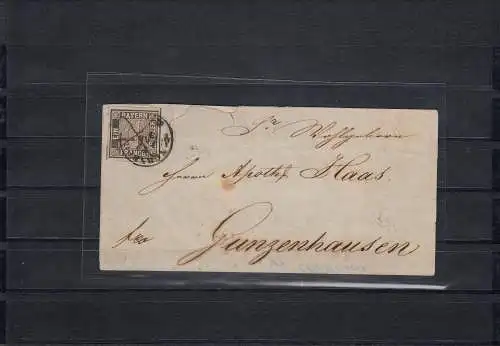 BAYERN
EIN
Sr Wohlgeboren
Herrn Apoth. Haas.
fco
Gunzenhausen